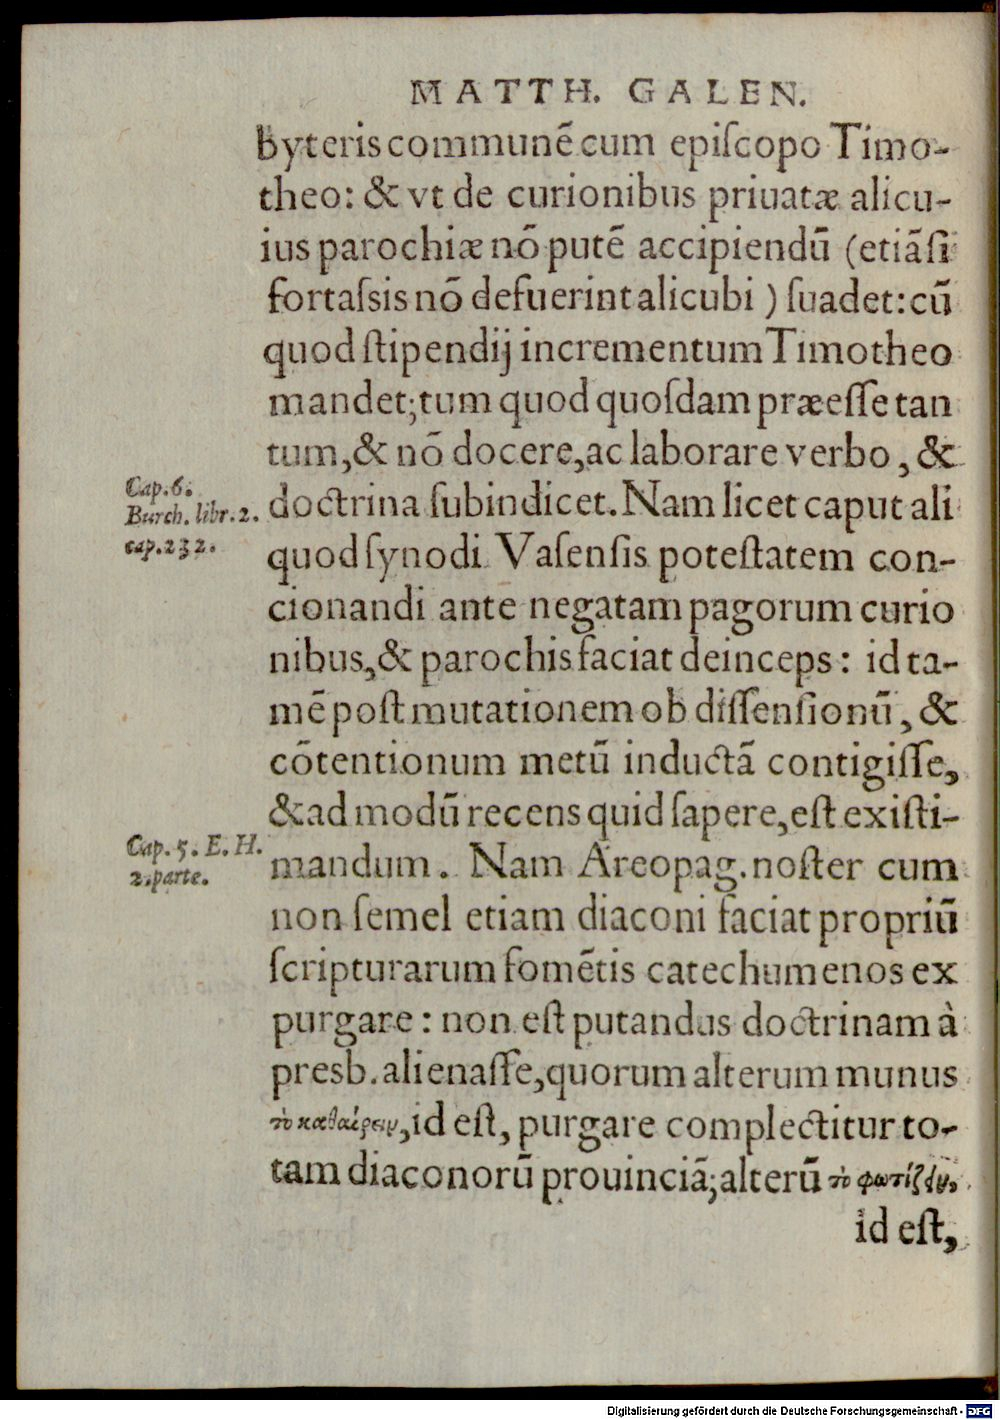 MATTH. GALEN.
byteris communē cum epiſcopo Timo-
theo: & vt de curionibus priuatæ alicu-
ius parochiæ nō putē accipiendū (etiāſi
fortaſsis nō defuerint alicubi) ſuadet: cū
quod ſtipendij incrementum Timotheo
mandet; tum quod quoſdam præeſſe tan
tum, & nō docere, ac laborare verbo, &
Cap. 6.
Burch. libr. 2.
cap. 232.
doctrina ſubindicet. Nam licet caput ali
quod ſynodi Vaſenſis poteſtatem con-
cionandi ante negatam pagorum curio
nibus, & parochis faciat deinceps: id ta-
mē poſt mutationem ob diſſenſionū, &
cōtentionum metū inductā contigiſſe,
& ad modū recens quid ſapere, eſt exiſti-
Cap. 5. E. H.
2. parte.
mandum. Nam Areopag. noſter cum
non ſemel etiam diaconi faciat propriū
ſcripturarum fomētis catechumenos ex
purgare: non eſt putandus doctrinam à
presb. alienaſſe, quorum alterum munus
τὸ καθαίρειν, id eſt, purgare complectitur to-
tam diaconorū prouinciā; alterū τὸ φωτίζειν,
id eſt,
Digitalisierung gefördert durch die Deutsche Forschungsgemeinschaft - DFG